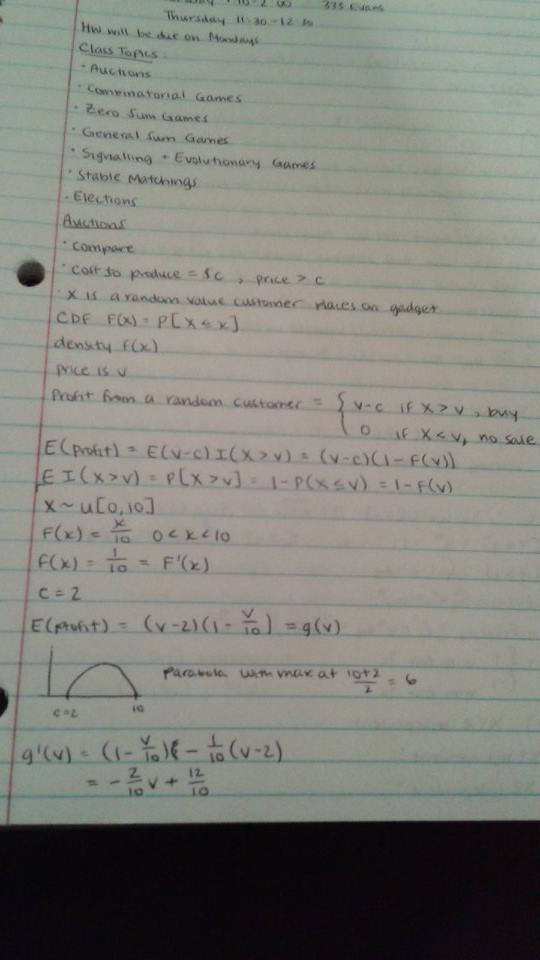 10-2:00 335 Evans
Thursday 11:30-12:30
HW will be due on Mondays
Class Topics:
· Auctions
· Combinatorial Games
· Zero Sum Games
· General Sum Games
· Signalling + Evolutionary Games
· Stable Matchings
· Elections
Auctions
· Compare
· Cost to produce = $c , price > c
· X is a random value customer places on gadget
CDF F(x) = P[X ≤ x]
density f(x)
price is v
Profit from a random customer = { v-c if X > v , buy
0 if X < v, no sale
E(profit) = E(v-c) I(X > v) = (v-c)(1-F(v))
E I(X > v) = P[X > v] = 1-P(X ≤ v) = 1-F(v)
X ~ U[0,10]
F(x) = x/10 0 < x < 10
f(x) = 1/10 = F'(x)
c = 2
E(profit) = (v-2)(1 - v/10) = g(v)
parabola with max at (10+2)/2 = 6
c=2 10
g'(v) = (1 - v/10) - 1/10 (v-2)
= - 2/10 v + 12/10